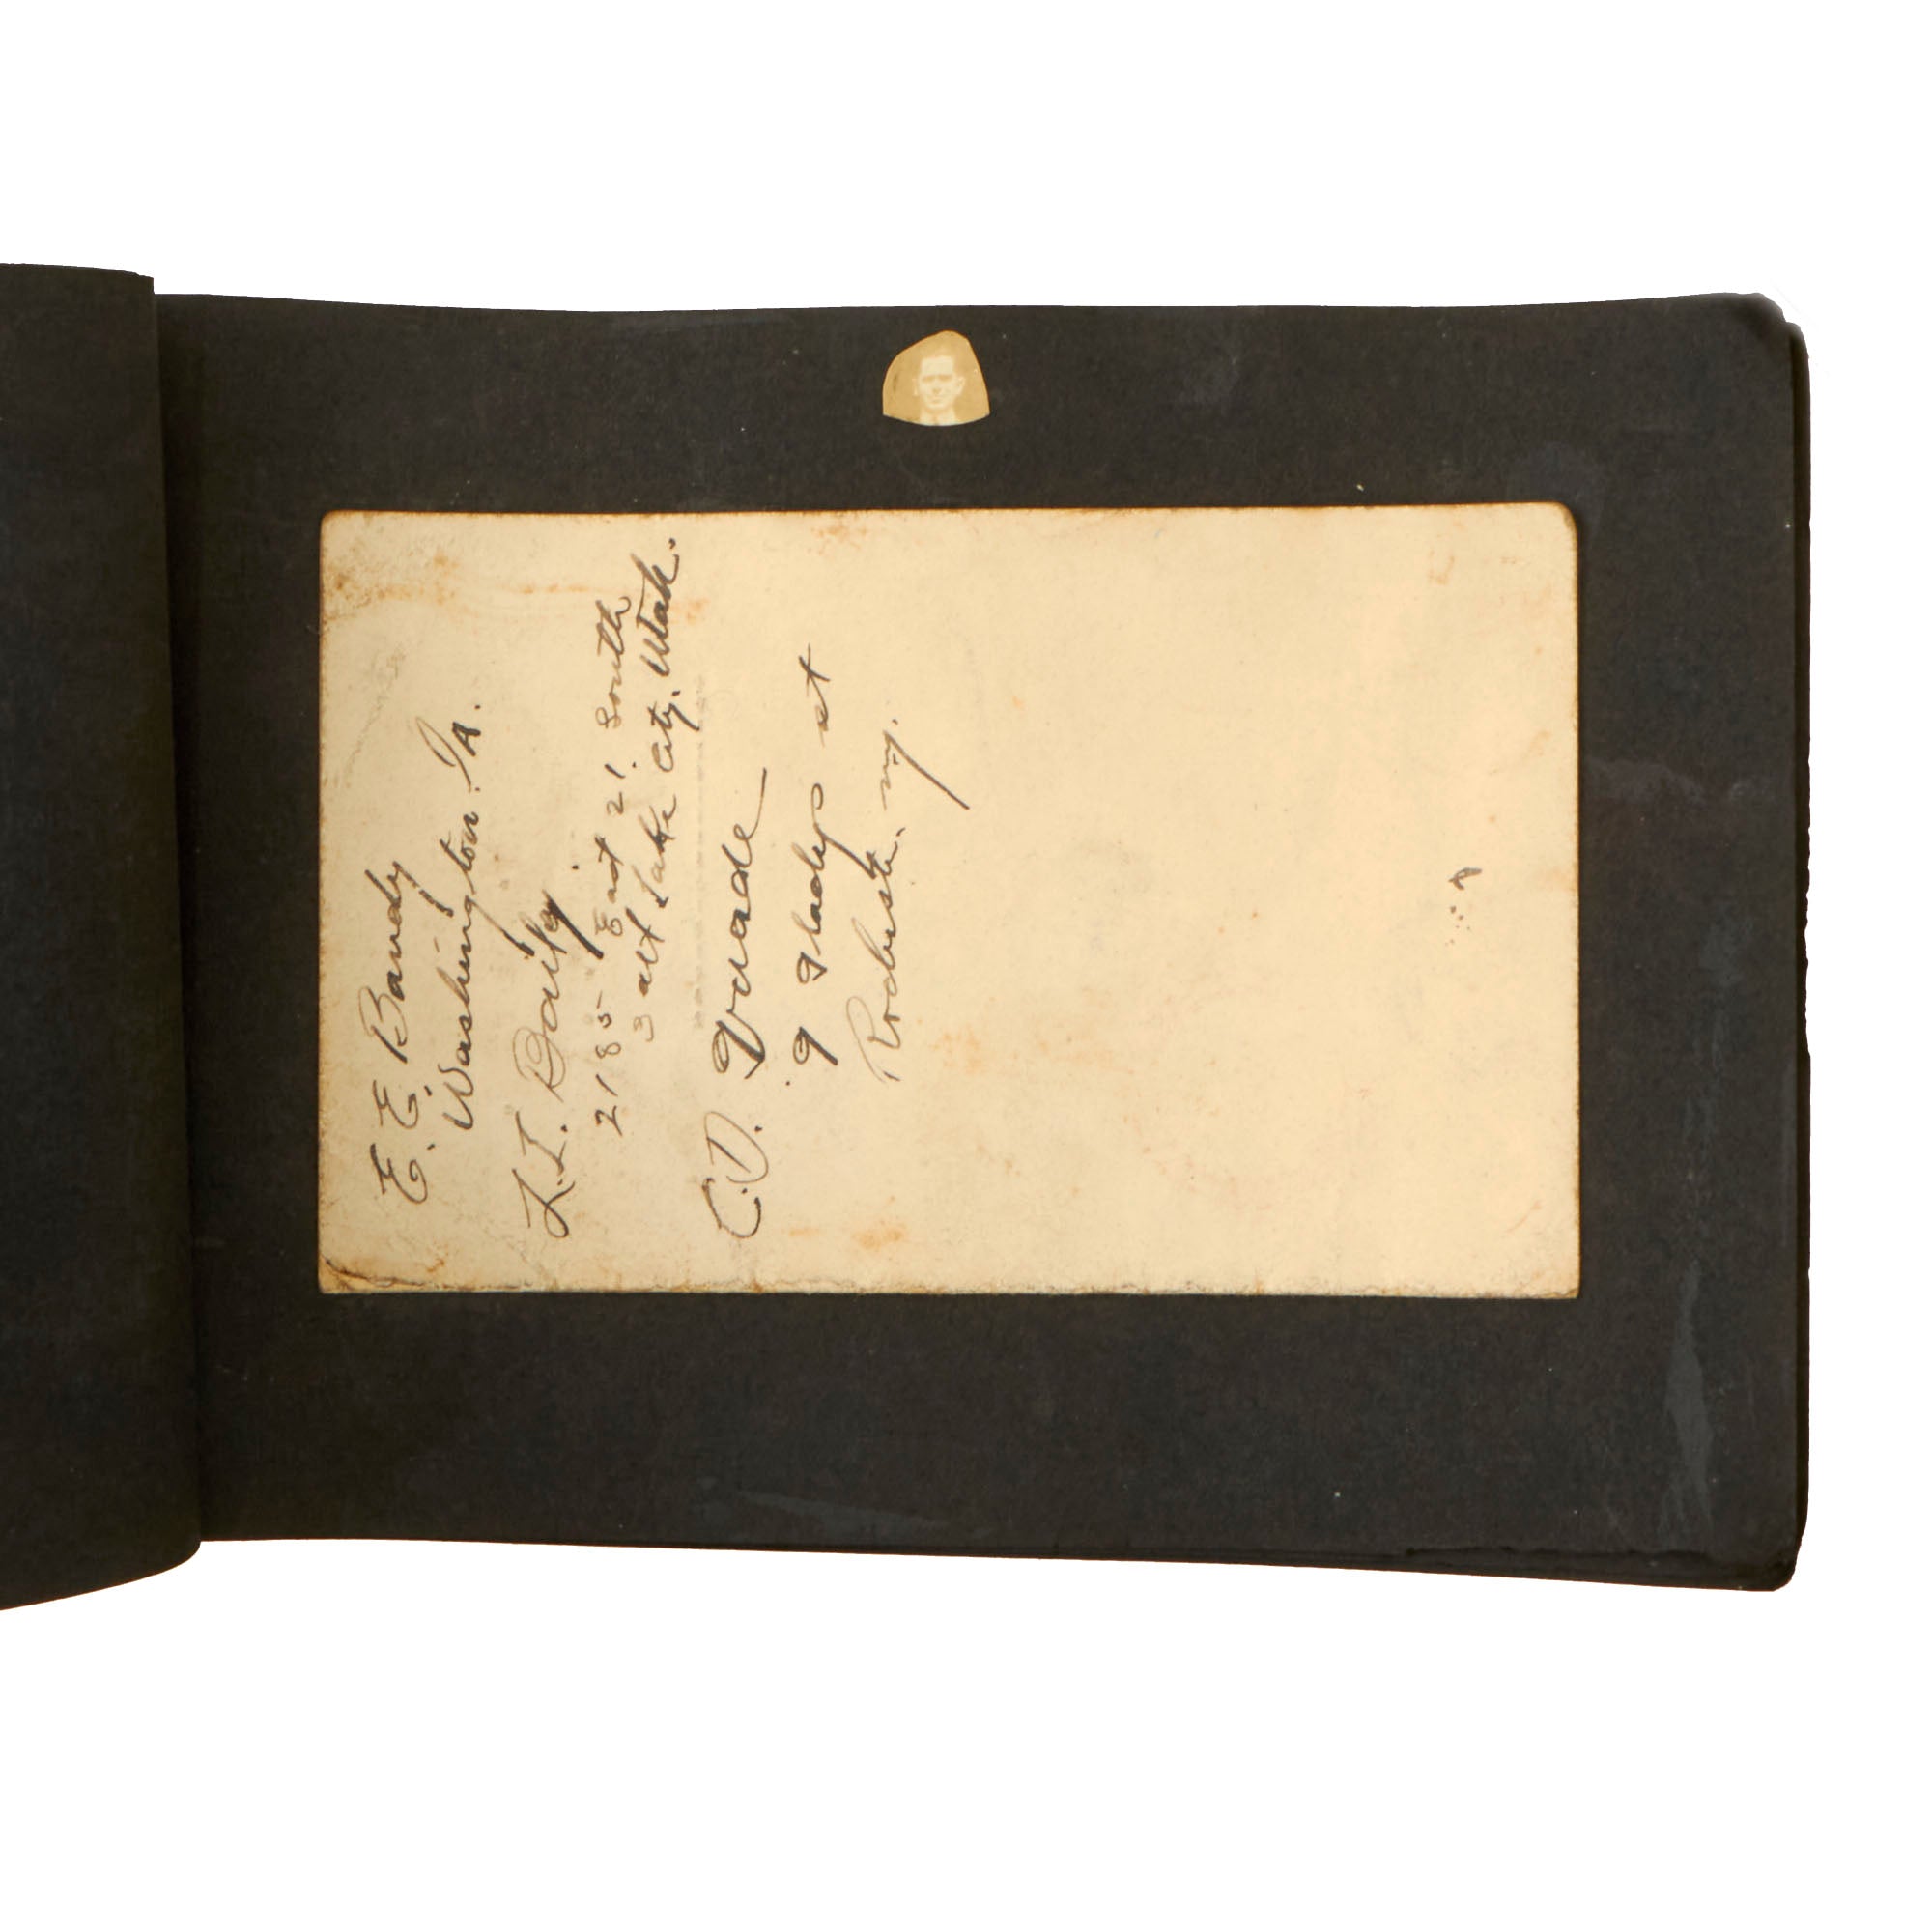 E. E. Bandy
Washington. Ia.
L. I. Dailey
2185 East 21. South
Salt Lake City, Utah.
C. D.
9 Gladys st
Rochester. ny.